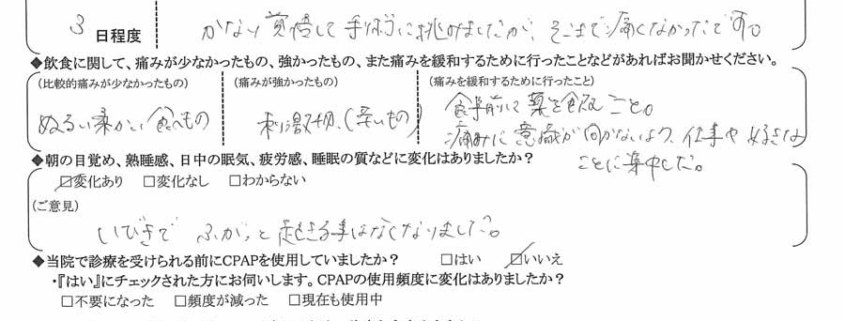 3 日程度
かなり覚悟して手術に挑みましたが、そこまで痛くなかったです。
◆飲食に関して、痛みが少なかったもの、強かったもの、また痛みを緩和するために行ったことなどがあればお聞かせください。
(比較的痛みが少なかったもの) (痛みが強かったもの) (痛みを緩和するために行ったこと)
ぬるい柔かい食べもの
刺激物、(辛いもの)
食事前に薬を飲むこと。
痛みに意識が向かないよう、仕事や好きな
ことに集中した。
◆朝の目覚め、熟睡感、日中の眠気、疲労感、睡眠の質などに変化はありましたか?
☑変化あり □変化なし □わからない
(ご意見)
いびきで ふがっと起きる事はなくなりました。
◆当院で診療を受けられる前にCPAPを使用していましたか? □はい ☑いいえ
・『はい』にチェックされた方にお伺いします。CPAPの使用頻度に変化はありましたか?
□不要になった □頻度が減った □現在も使用中